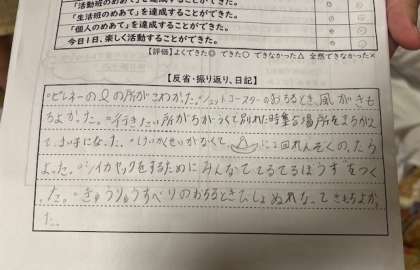 「活動班のめあて」を達成することができた。 ○
「生活班のめあて」を達成することができた。 ○
「個人のめあて」を達成することができた。 ○
今日1日、楽しく活動することができた。 ◎
【評価】よくできた◎ できた○ できなかった△ 全然できなかった×
【反省・振り返り、日記】
の所がこわかった。ジェットコースターのおちるとき、風がきも
ちよかった。行きたい所がちがうくて別れた時集る場所をまちがえ
て、まいごになった。 に2回れんぞくのったら
よった。シーカヤックをするためにみんなでてるてるぼうずをつく
った。きゅうりゅうすべりのおちるときびしょぬれなってきもちよか
た。